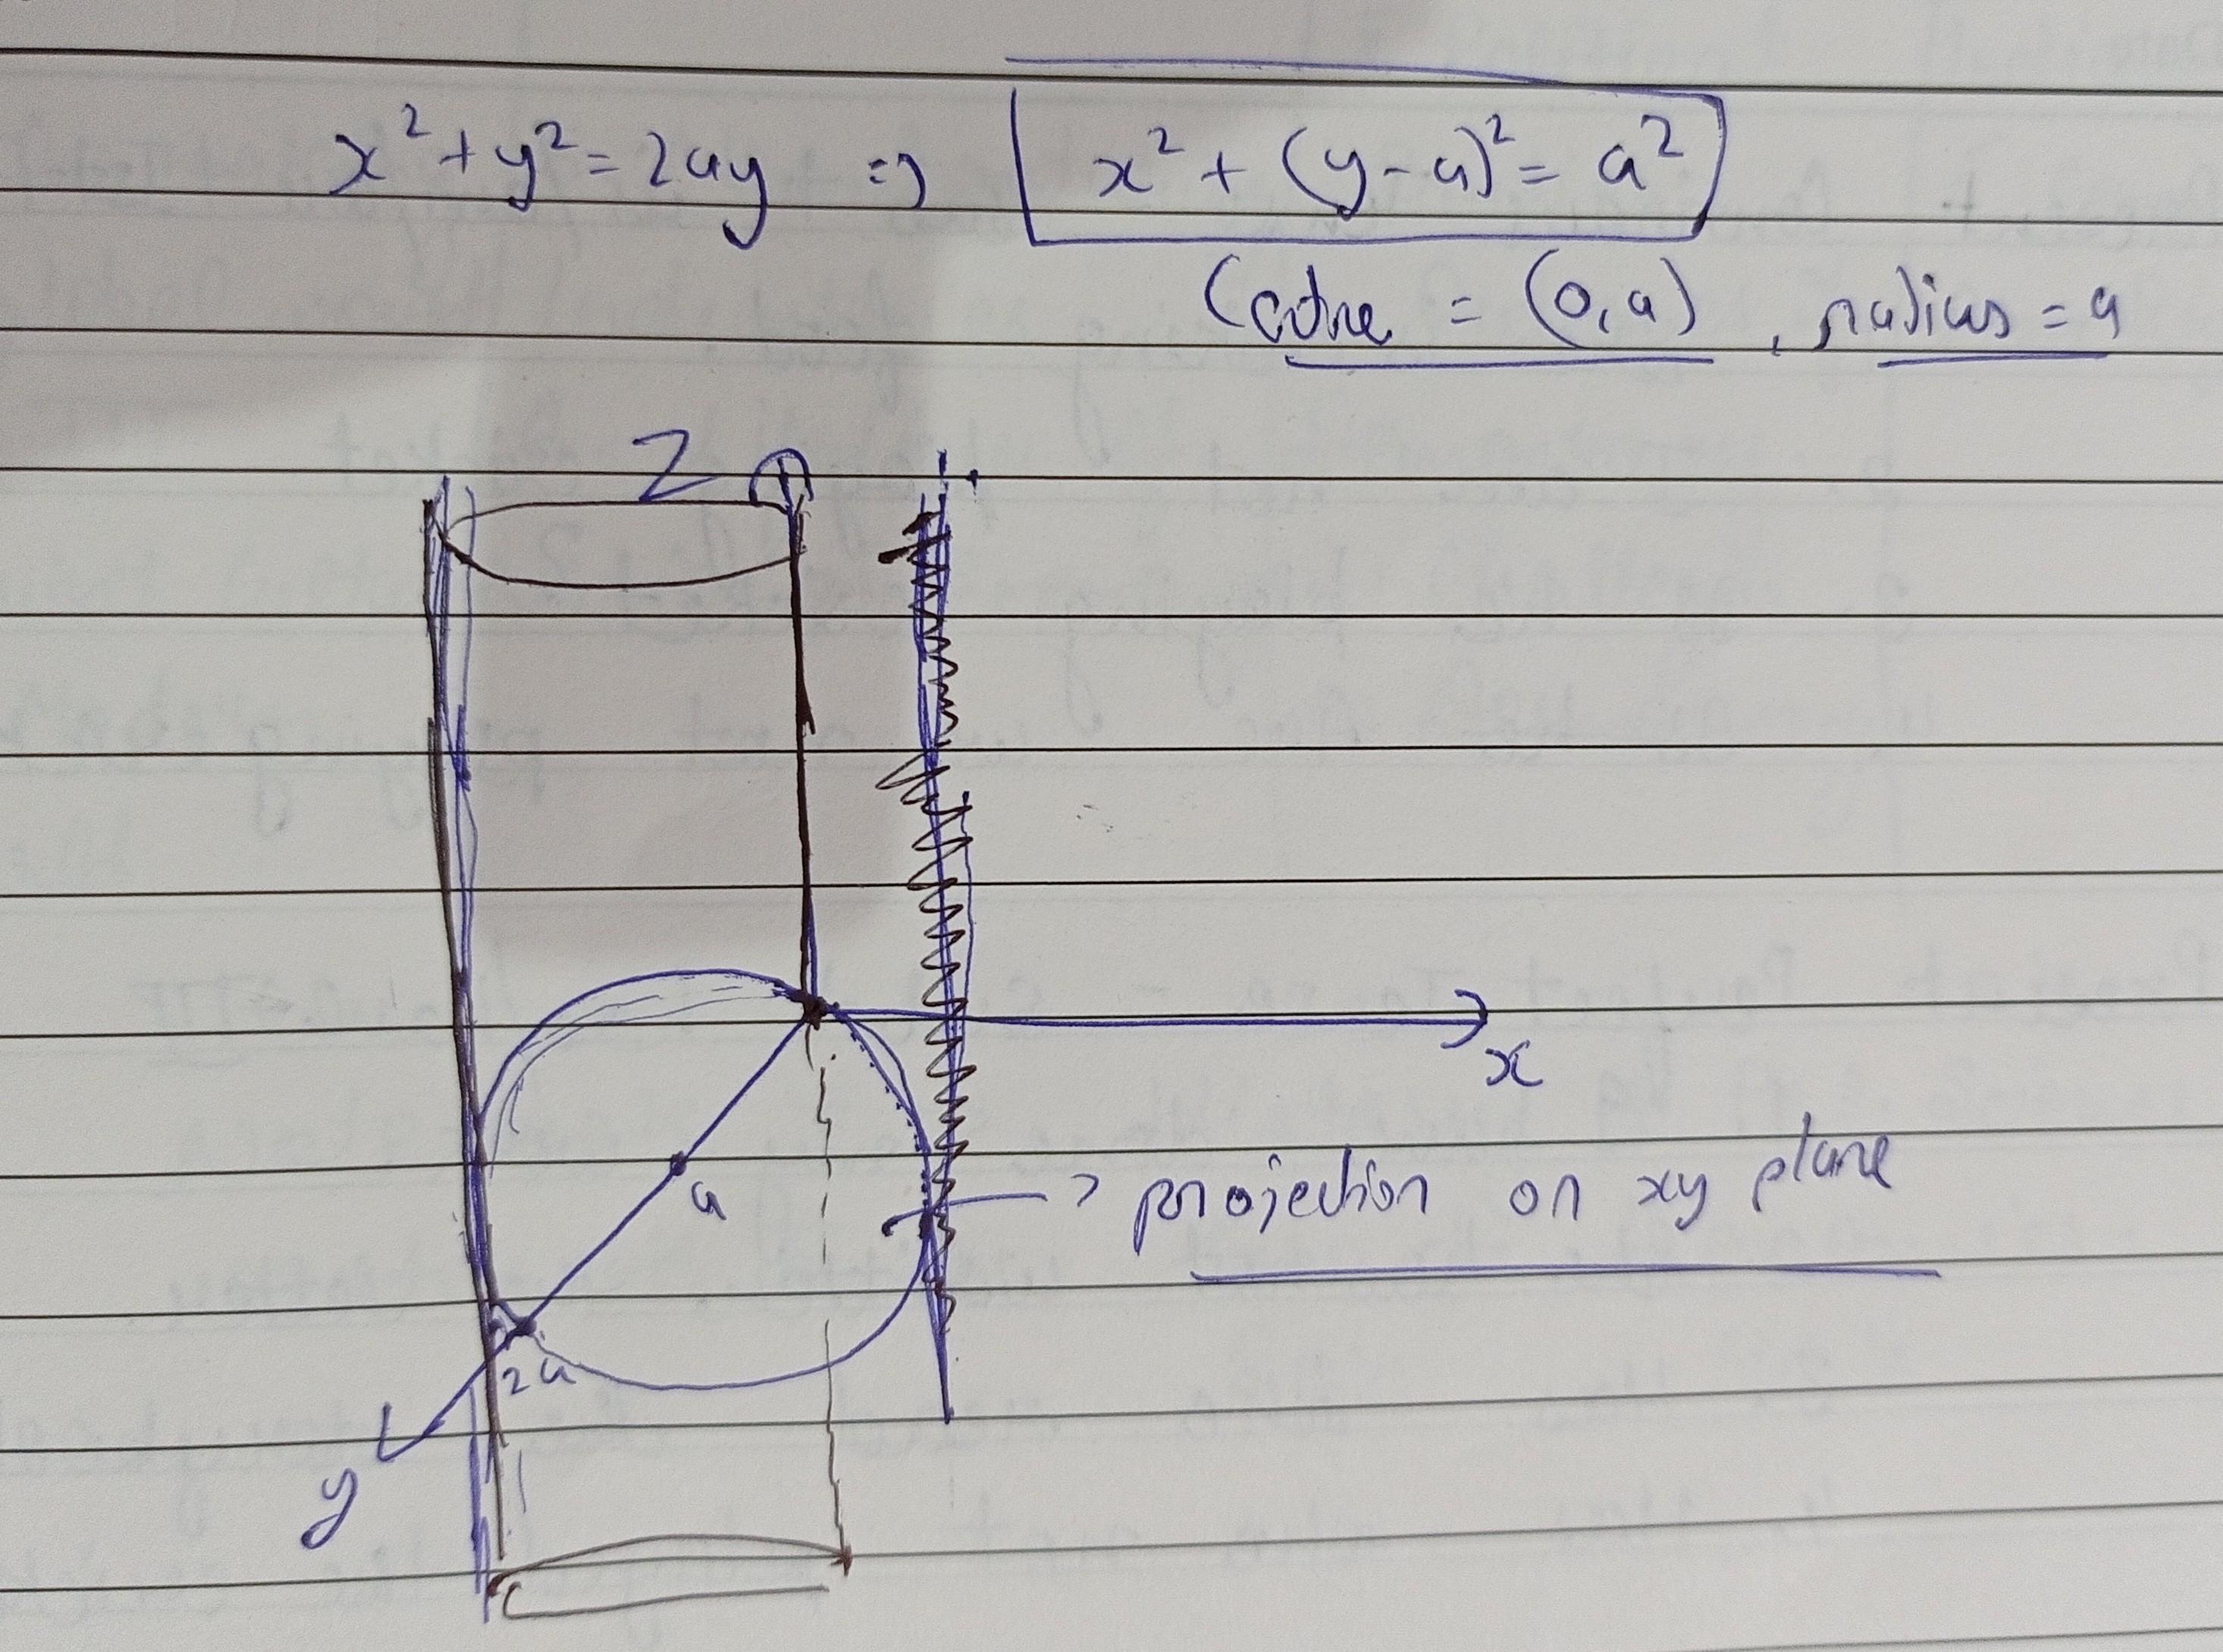 x² + y² = 2ay ⇒ x² + (y-a)² = a²
Centre = (0,a), radius = a
Z
x
a
projection on xy plane
2a
y